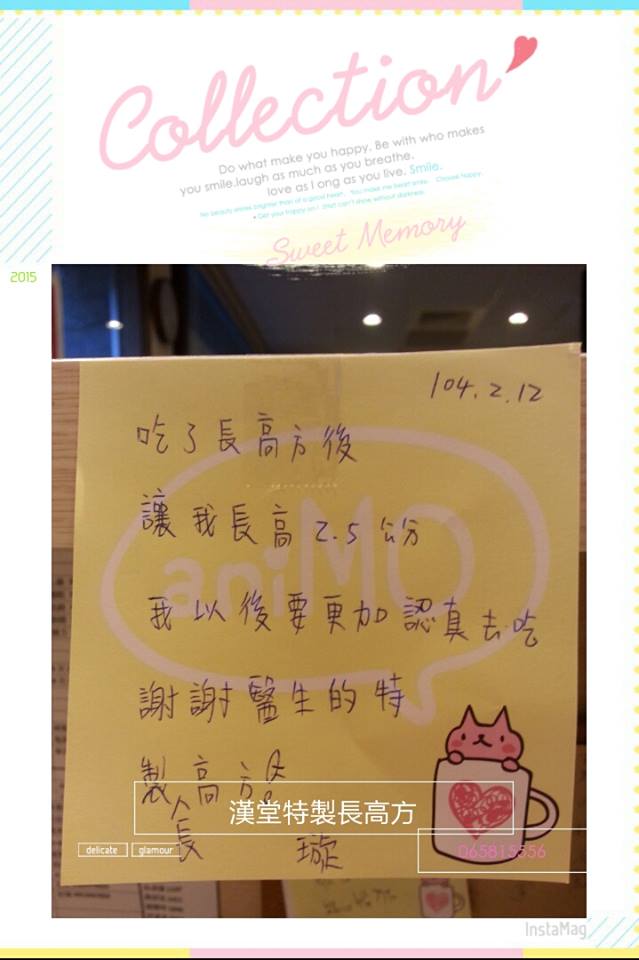 Collection
Do what make you happy. Be with who makes
you smile.laugh as much as you breathe.
love as long as you live. Smile.
No beauty shines brighter than of a good heart. You make me heart smile. Choose happy.
Get your happy on! that can't show without darkness.
Sweet Memory
2015
104.2.12
吃了長高方後
讓我長高2.5公分
我以後要更加認真去吃
謝謝醫生的特
製長高方
璇
aniMO
漢堂特製長高方
delicate
glamour
065815556
InstaMag